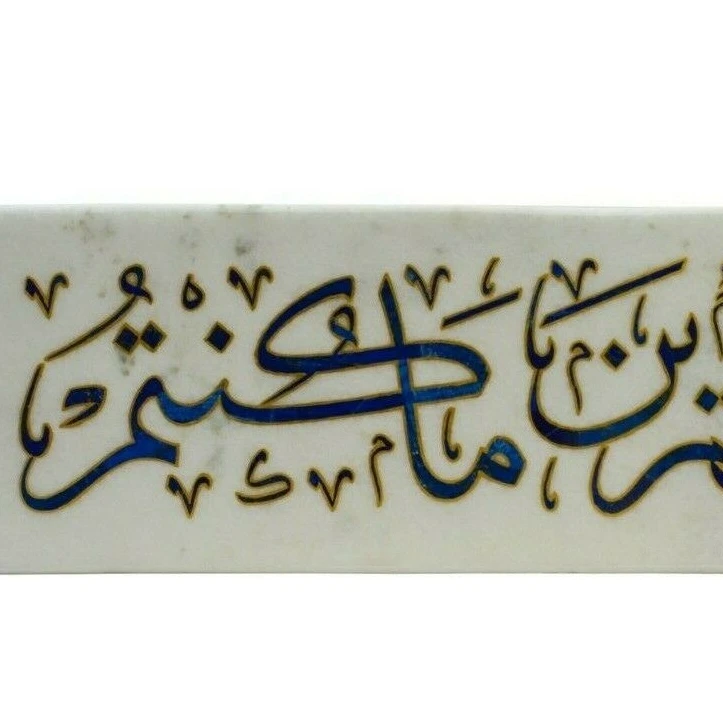 أين ما كنتم